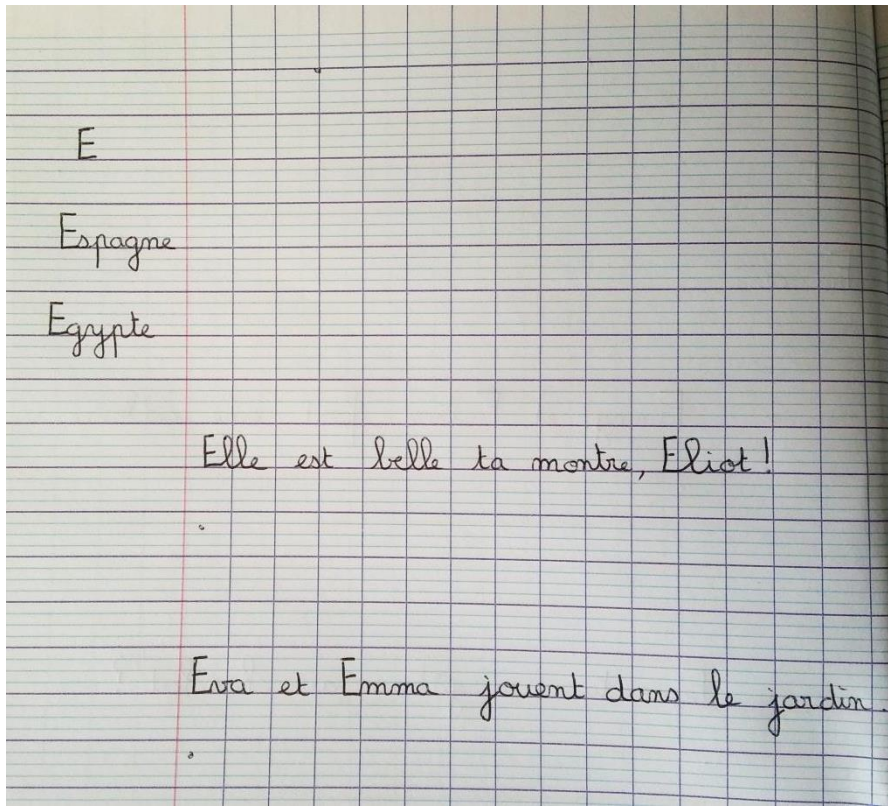 E
Espagne
Egypte
Elle est belle ta montre, Eliot !
Eva et Emma jouent dans le jardin.